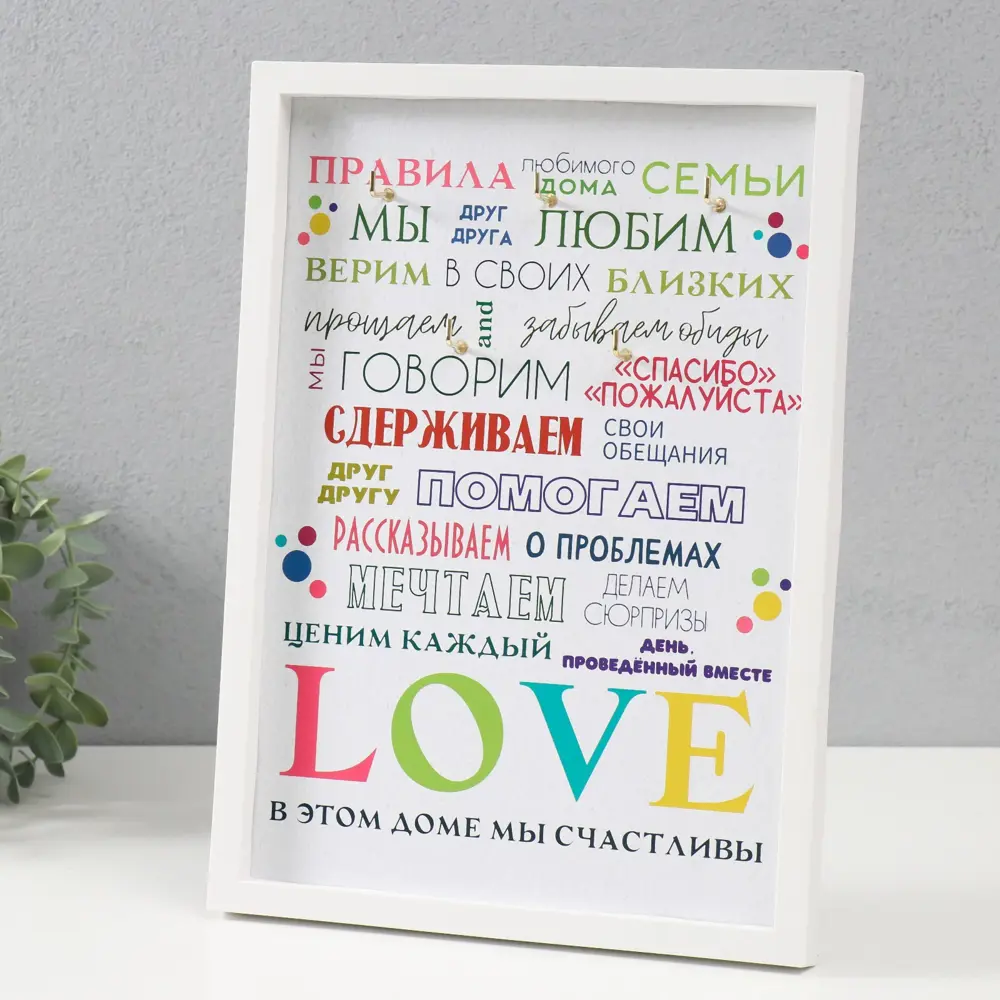 ПРАВИЛА любимого ДОМА СЕМЬИ
МЫ ДРУГ ДРУГА ЛЮБИМ
ВЕРИМ В СВОИХ БЛИЗКИХ
прощаем and забываем обиды
МЫ ГОВОРИМ «СПАСИБО» «ПОЖАЛУЙСТА»
СДЕРЖИВАЕМ СВОИ ОБЕЩАНИЯ
ДРУГ ДРУГУ ПОМОГАЕМ
РАССКАЗЫВАЕМ О ПРОБЛЕМАХ
МЕЧТАЕМ ДЕЛАЕМ СЮРПРИЗЫ
ЦЕНИМ КАЖДЫЙ ДЕНЬ, ПРОВЕДЁННЫЙ ВМЕСТЕ
LOVE
В ЭТОМ ДОМЕ МЫ СЧАСТЛИВЫ